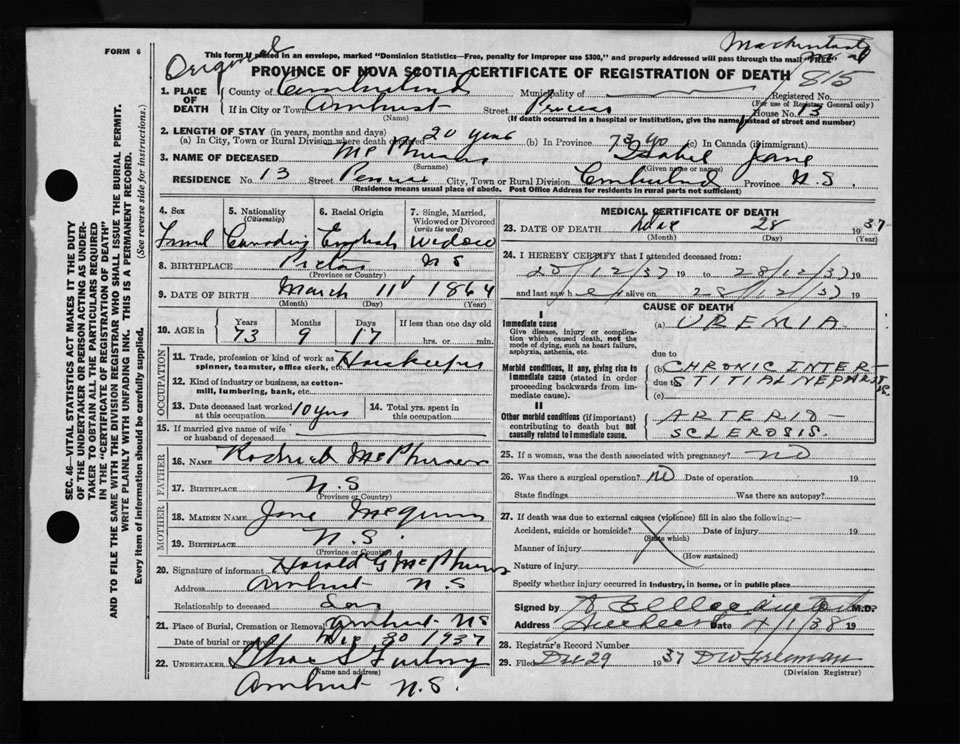 FORM 6
This form if placed in an envelope, marked "Dominion Statistics—Free, penalty for improper use $300," and properly addressed will pass through the mail "FREE"
Original
815
PROVINCE OF NOVA SCOTIA—CERTIFICATE OF REGISTRATION OF DEATH
1. PLACE OF DEATH
County of Cumberland Municipality of Registered No.
(For use of Registrar General only)
If in City or Town Amherst Street House No. 13
(Name) (If death occurred in a hospital or institution, give the name instead of street and number)
2. LENGTH OF STAY (in years, months and days)
(a) In City, Town or Rural Division where death occurred 20 years (b) In Province 73 (c) In Canada (if immigrant)
3. NAME OF DECEASED Isabel Jane
(Surname) (Given name or names)
RESIDENCE No. 13 Street City, Town or Rural Division Cumberland Province N.S.
(Residence means usual place of abode. Post Office Address for residents in rural parts not sufficient)
4. Sex 5. Nationality (Citizenship) 6. Racial Origin 7. Single, Married, Widowed or Divorced (write the word)
Widow
8. BIRTHPLACE Pictou N S
(Province or Country)
9. DATE OF BIRTH March 11 1864
(Month) (Day) (Year)
10. AGE in Years Months Days If less than one day old
73 9 17 hrs. or min.
OCCUPATION
11. Trade, profession or kind of work as spinner, teamster, office clerk, etc. Housekeeper
12. Kind of industry or business, as cotton-mill, lumbering, bank, etc.
13. Date deceased last worked at this occupation 10 yrs 14. Total yrs. spent in this occupation
15. If married give name of wife or husband of deceased
FATHER
16. NAME
17. BIRTHPLACE N.S
(Province or Country)
MOTHER
18. MAIDEN NAME Jane
19. BIRTHPLACE N.S.
(Province or Country)
20. Signature of informant Harold G
Address Amherst N.S
Relationship to deceased Son
21. Place of Burial, Cremation or Removal Amherst NS
Date of burial or removal Dec 30 1937
22. UNDERTAKER
(Name and address)
Amherst N.S.
MEDICAL CERTIFICATE OF DEATH
23. DATE OF DEATH 28 1937
(Month) (Day) (Year)
24. I HEREBY CERTIFY that I attended deceased from:
/12/37 19 to 28/12/37 19
and last saw her alive on 28/12/37 19
CAUSE OF DEATH
I
Immediate cause
Give disease, injury or complication which caused death, not the mode of dying, such as heart failure, asphyxia, asthenia, etc.
(a) UREMIA
due to
Morbid conditions, if any, giving rise to Immediate cause (stated in order proceeding backwards from immediate cause).
(b) CHRONIC INTER-
due to STITIAL NEPHRITIS
(c)
II
Other morbid conditions (if important) contributing to death but not causally related to immediate cause.
ARTERIO
SCLEROSIS.
25. If a woman, was the death associated with pregnancy? NO
26. Was there a surgical operation? NO Date of operation 19
State findings Was there an autopsy?
27. If death was due to external causes (violence) fill in also the following:—
Accident, suicide or homicide? Date of injury 19
(State which)
Manner of injury
(How sustained)
Nature of injury
Specify whether injury occurred in Industry, in home, or in public place
Signed by M.D.
Address Date 4/1/38 19
28. Registrar's Record Number
29. Filed Dec 29 1937 D W Freeman
(Division Registrar)
SEC. 46—VITAL STATISTICS ACT MAKES IT THE DUTY
OF THE UNDERTAKER OR PERSON ACTING AS UNDER-
TAKER TO OBTAIN ALL THE PARTICULARS REQUIRED
IN THE "CERTIFICATE OF REGISTRATION OF DEATH"
AND TO FILE THE SAME WITH THE DIVISION REGISTRAR WHO SHALL ISSUE THE BURIAL PERMIT.
WRITE PLAINLY WITH UNFADING INK. THIS IS A PERMANENT RECORD.
Every item of information should be carefully supplied. (See reverse side for instructions.)